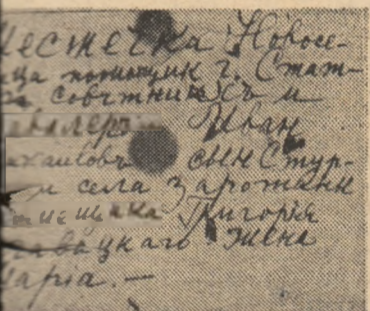 местечка Новосе-
ица помещик г. Стат-
совѣтникъ и
кавалеръ Иван
хаиловъ сын Стур-
и села Зарожани
Григорія
жена
марія. —